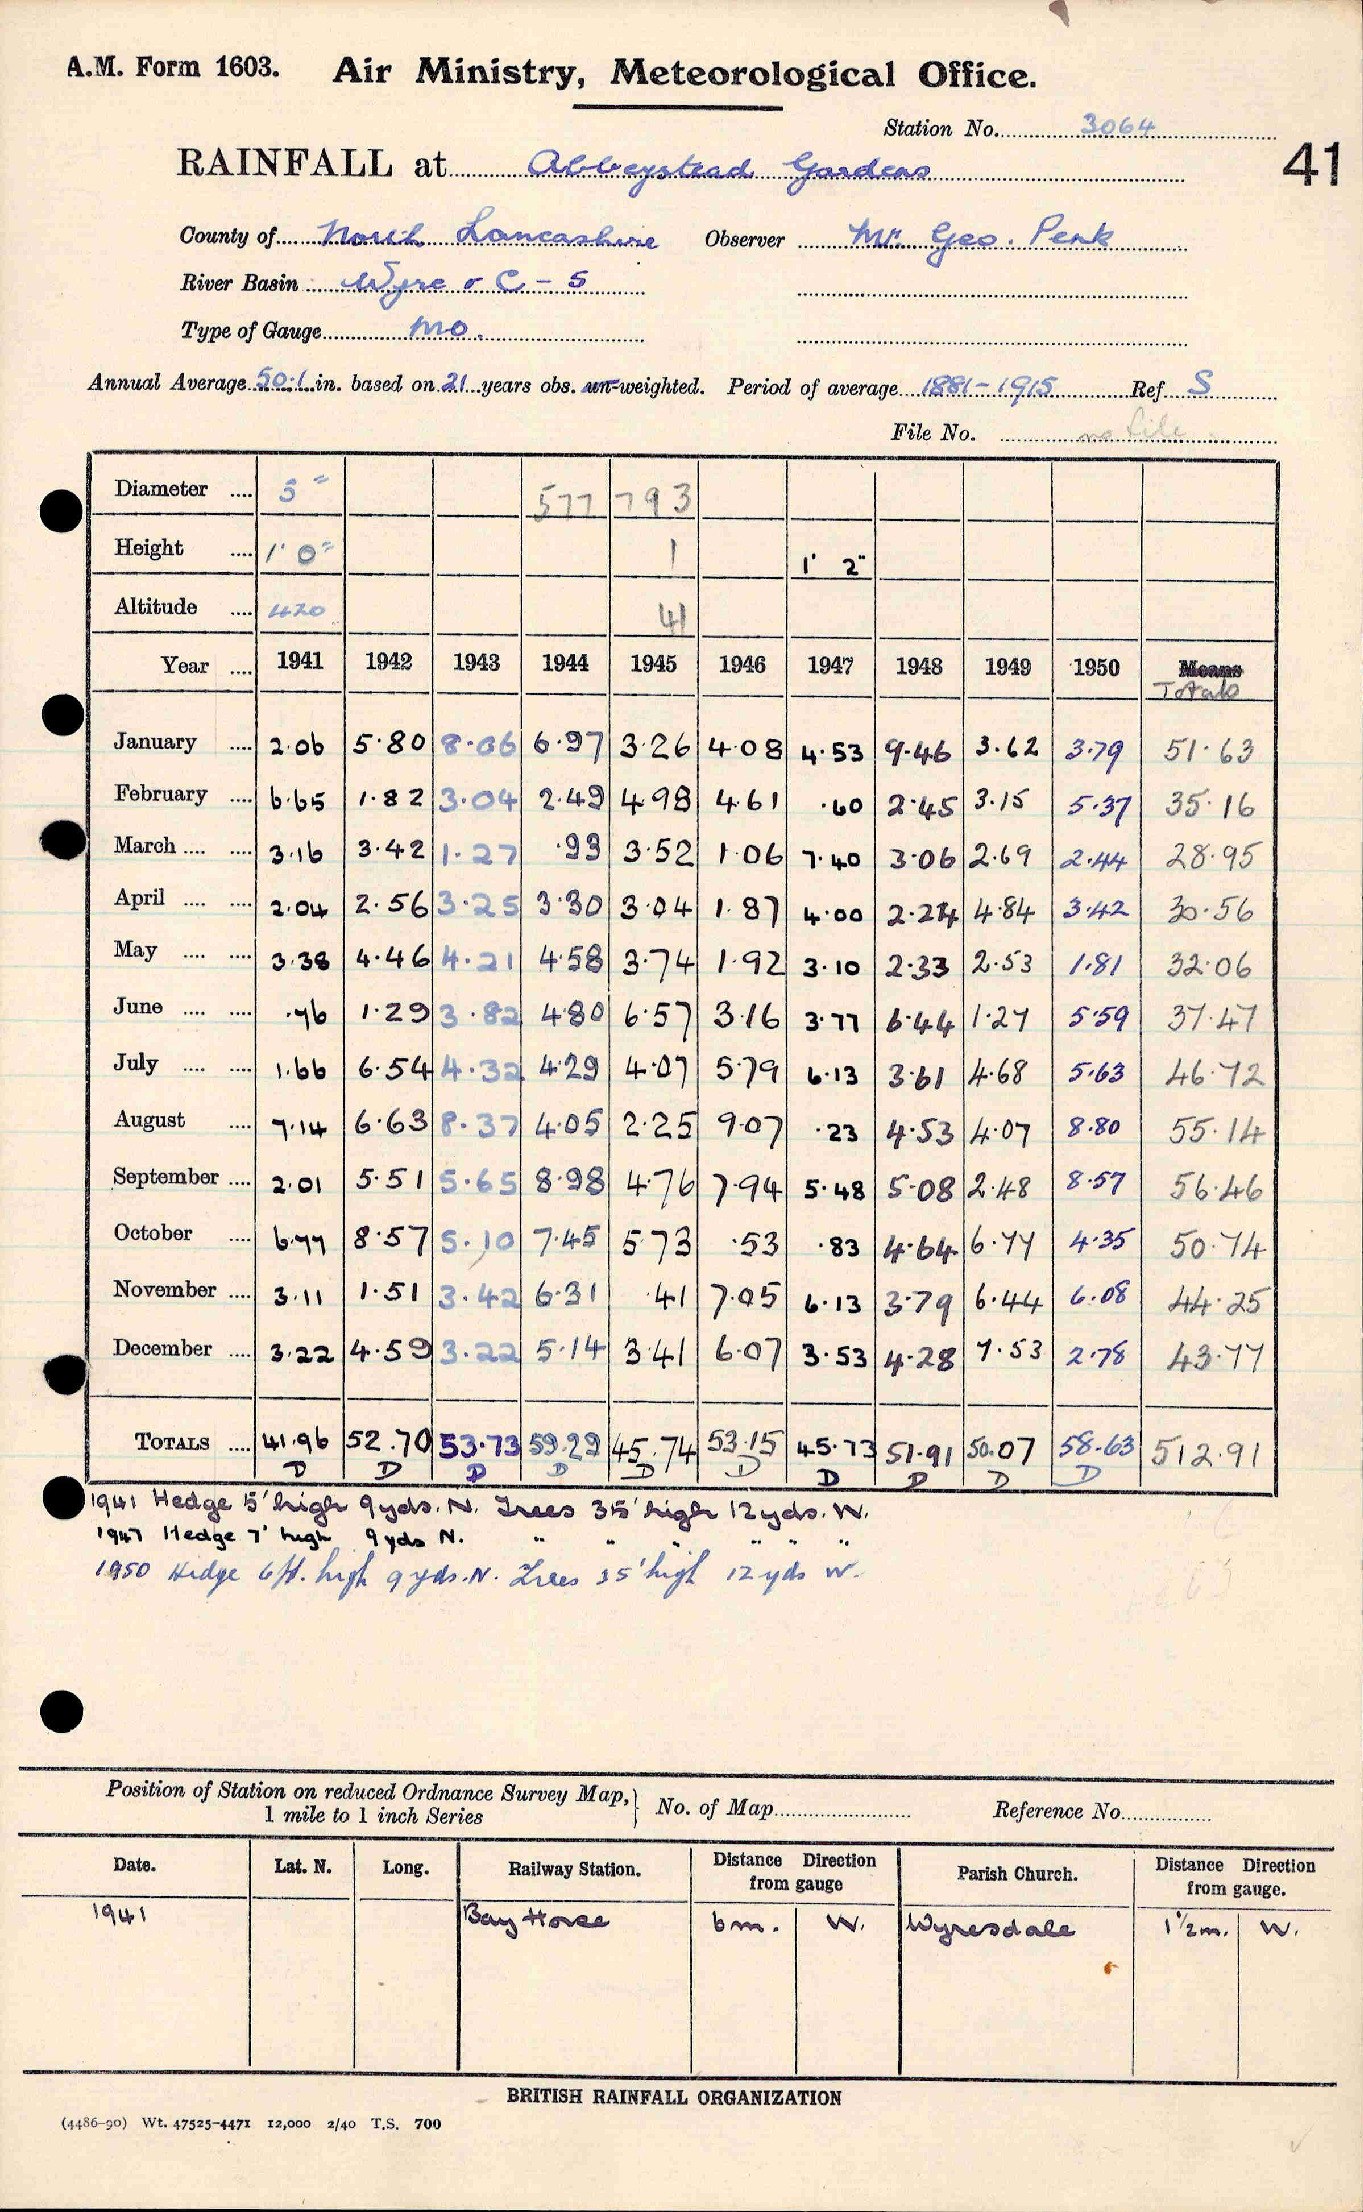 A.M. Form 1603. Air Ministry, Meteorological Office.
Station No. 3064
41
RAINFALL at Abbeystead Gardens
County of North Lancashire Observer Mr. Geo. Penk
River Basin Wyre & C - 5
Type of Gauge MO.
Annual Average 50.1 in. based on 21 years obs. un-weighted. Period of average 1881-1915 Ref. S
File No. no file
Diameter .... 5" 577 793
Height .... 1' 0" 1 1' 2"
Altitude .... 420 41
Year .... 1941 1942 1943 1944 1945 1946 1947 1948 1949 1950 Means
Totals
January .... 2.06 5.80 8.06 6.97 3.26 4.08 4.53 9.46 3.62 3.79 51.63
February .... 6.65 1.82 3.04 2.49 4.98 4.61 .60 2.45 3.15 5.37 35.16
March .... .... 3.16 3.42 1.27 .93 3.52 1.06 7.40 3.06 2.69 2.44 28.95
April .... .... 2.04 2.56 3.25 3.30 3.04 1.87 4.00 2.24 4.84 3.42 30.56
May .... .... 3.38 4.46 4.21 4.58 3.74 1.92 3.10 2.33 2.53 1.81 32.06
June .... .... .76 1.29 3.82 4.80 6.57 3.16 3.77 6.44 1.27 5.59 37.47
July .... .... 1.66 6.54 4.32 4.29 4.07 5.79 6.13 3.61 4.68 5.63 46.72
August .... 7.14 6.63 8.37 4.05 2.25 9.07 .23 4.53 4.07 8.80 55.14
September .... 2.01 5.51 5.65 8.98 4.76 7.94 5.48 5.08 2.48 8.57 56.46
October .... 6.77 8.57 5.10 7.45 5.73 .53 .83 4.64 6.77 4.35 50.74
November .... 3.11 1.51 3.42 6.31 .41 7.05 6.13 3.79 6.44 6.08 44.25
December .... 3.22 4.59 3.22 5.14 3.41 6.07 3.53 4.28 7.53 2.78 43.77
TOTALS .... 41.96 52.70 53.73 59.29 45.74 53.15 45.73 51.91 50.07 58.63 512.91
D D D D D D D D D D
1941 Hedge 5' high 9yds. N. Trees 35' high 12yds. W.
1947 Hedge 7' high 9yds N. " " " " " "
1950 Hedge 6ft. high 9yds. N. Trees 35' high 12yds W.
Position of Station on reduced Ordnance Survey Map, } No. of Map Reference No.
1 mile to 1 inch Series
Date. Lat. N. Long. Railway Station. Distance Direction from gauge Parish Church. Distance Direction from gauge.
1941 Bay Horse 6m. W. Wyresdale 1½m. W.
BRITISH RAINFALL ORGANIZATION
(4486-90) Wt. 47525-4471 12,000 2/40 T.S. 700